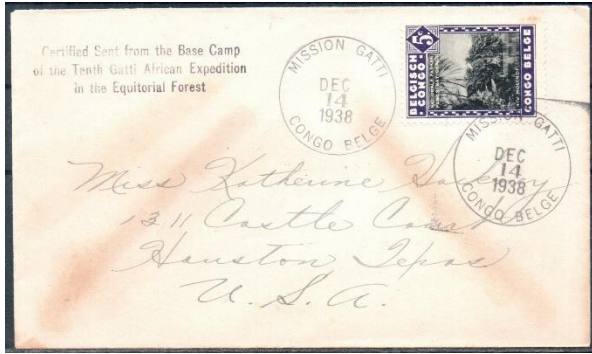 Certified Sent from the Base Camp
of the Tenth Gatti African Expedition
in the Equitorial Forest
MISSION GATTI
DEC
14
1938
CONGO BELGE
BELGISCH
CONGO
5c
CONGO BELGE
MISSION GATTI
DEC
14
1938
CONGO BELGE
Miss Katherine
1311 Castle Court
Houston Texas
U. S. A.